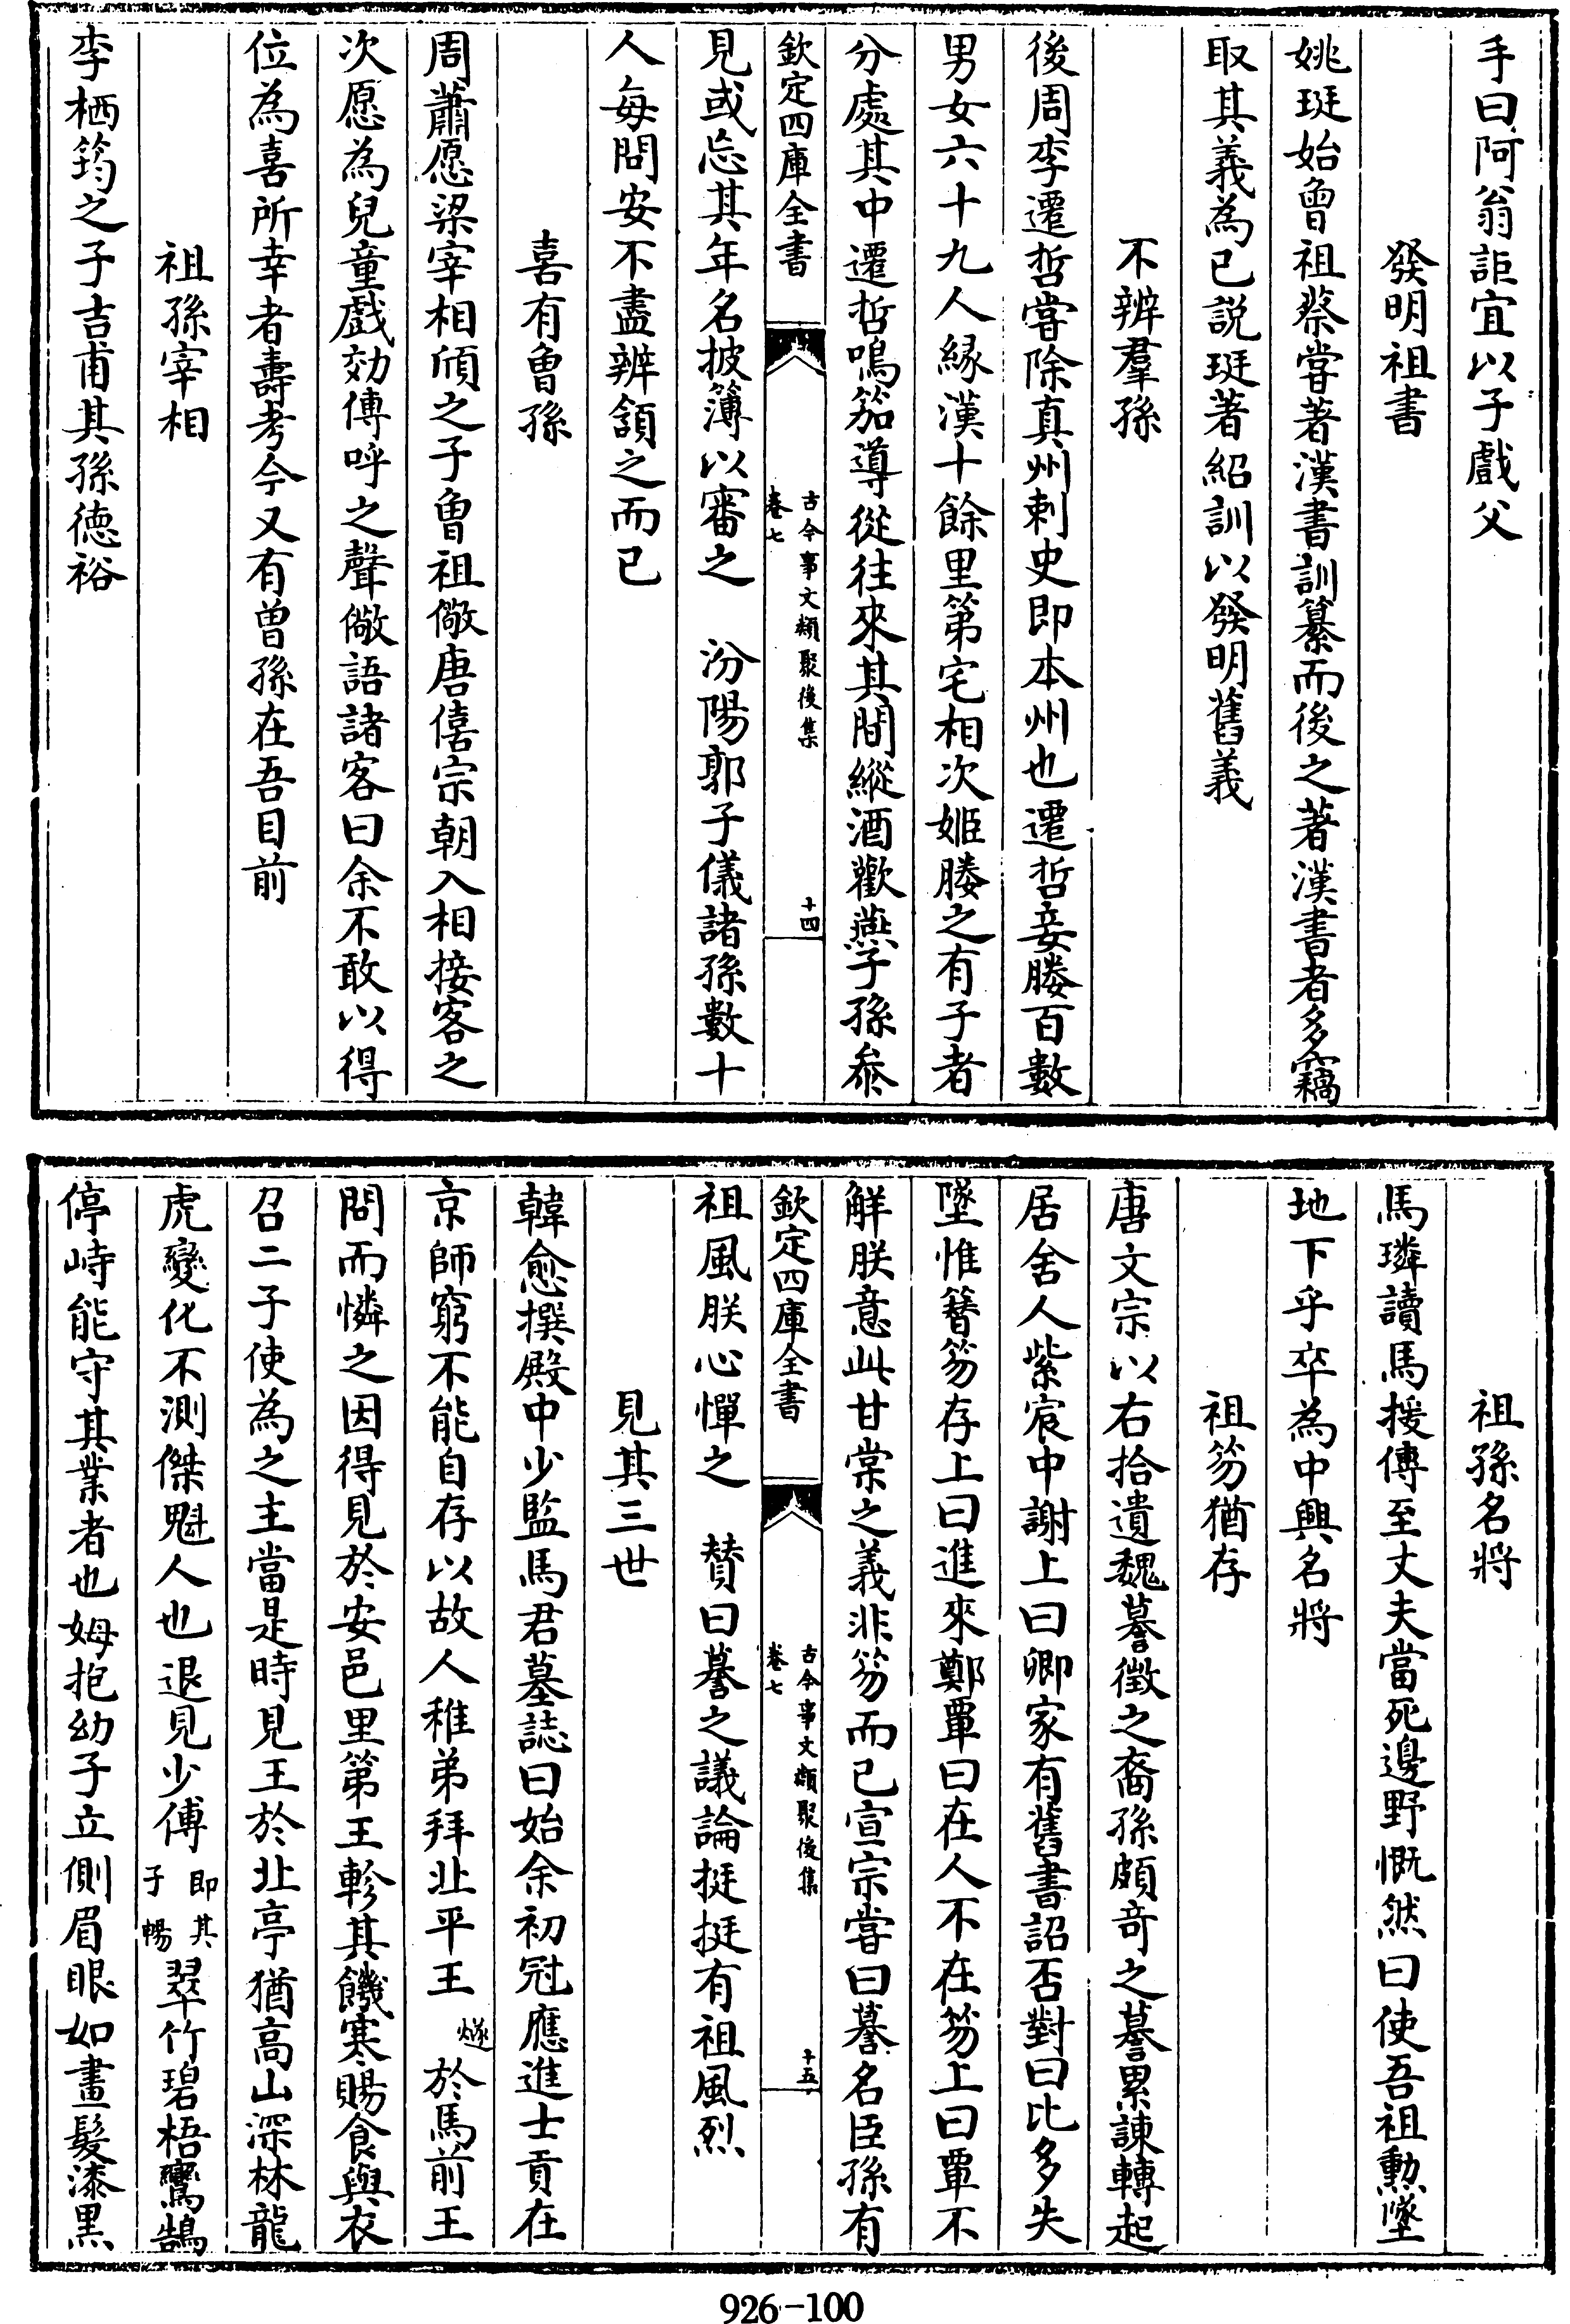 手曰阿翁詎宜以子戲父
發明祖書
姚珽始曾祖蔡嘗著漢書訓纂而後之著漢書者多竊
取其義為已説珽著紹訓以發明舊義
不辨羣孫
後周李遷哲嘗除真州刺史即本州也遷哲妾媵百數
男女六十九人緣漢十餘里第宅相次姬媵之有子者
分處其中遷哲鳴笳導從往來其間縱酒歡燕子孫叅
欽定四庫全書
古今事文類聚後集
卷七
十四
見或忘其年名披簿以審之 汾陽郭子儀諸孫數十
人每問安不盡辨頷之而已
喜有曾孫
周蕭愿梁宰相頎之子曾祖儆唐僖宗朝入相接客之
次愿為兒童戲効傳呼之聲儆語諸客曰余不敢以得
位為喜所幸者壽考今又有曽孫在吾目前
祖孫宰相
李栖筠之子吉甫其孫德裕
祖孫名將
馬璘讀馬援傳至丈夫當死邊野慨然曰使吾祖勲墜
地下乎卒為中興名將
祖笏猶存
唐文宗以右拾遺魏謩徵之裔孫頗竒之謩累諫轉起
居舍人紫宸中謝上曰卿家有舊書詔否對曰比多失
墜惟簪笏存上曰進來鄭覃曰在人不在笏上曰覃不
觧朕意此甘棠之義非笏而已宣宗嘗曰謩名臣孫有
欽定四庫全書
古今事文類聚後集
卷七
十五
祖風朕心憚之 賛曰謩之議論挺挺有祖風烈
見其三世
韓愈撰殿中少監馬君墓誌曰始余初冠應進士貢在
京師窮不能自存以故人稚弟拜北平王燧於馬前王
問而憐之因得見於安邑里第王軫其饑寒賜食與衣
召二子使為之主當是時見王於北亭猶高山深林龍
虎變化不測傑魁人也退見少傅即其子暢翠竹碧梧鸞鵠
停峙能守其業者也姆抱幼子立側眉眼如畫髮漆黒
926-100